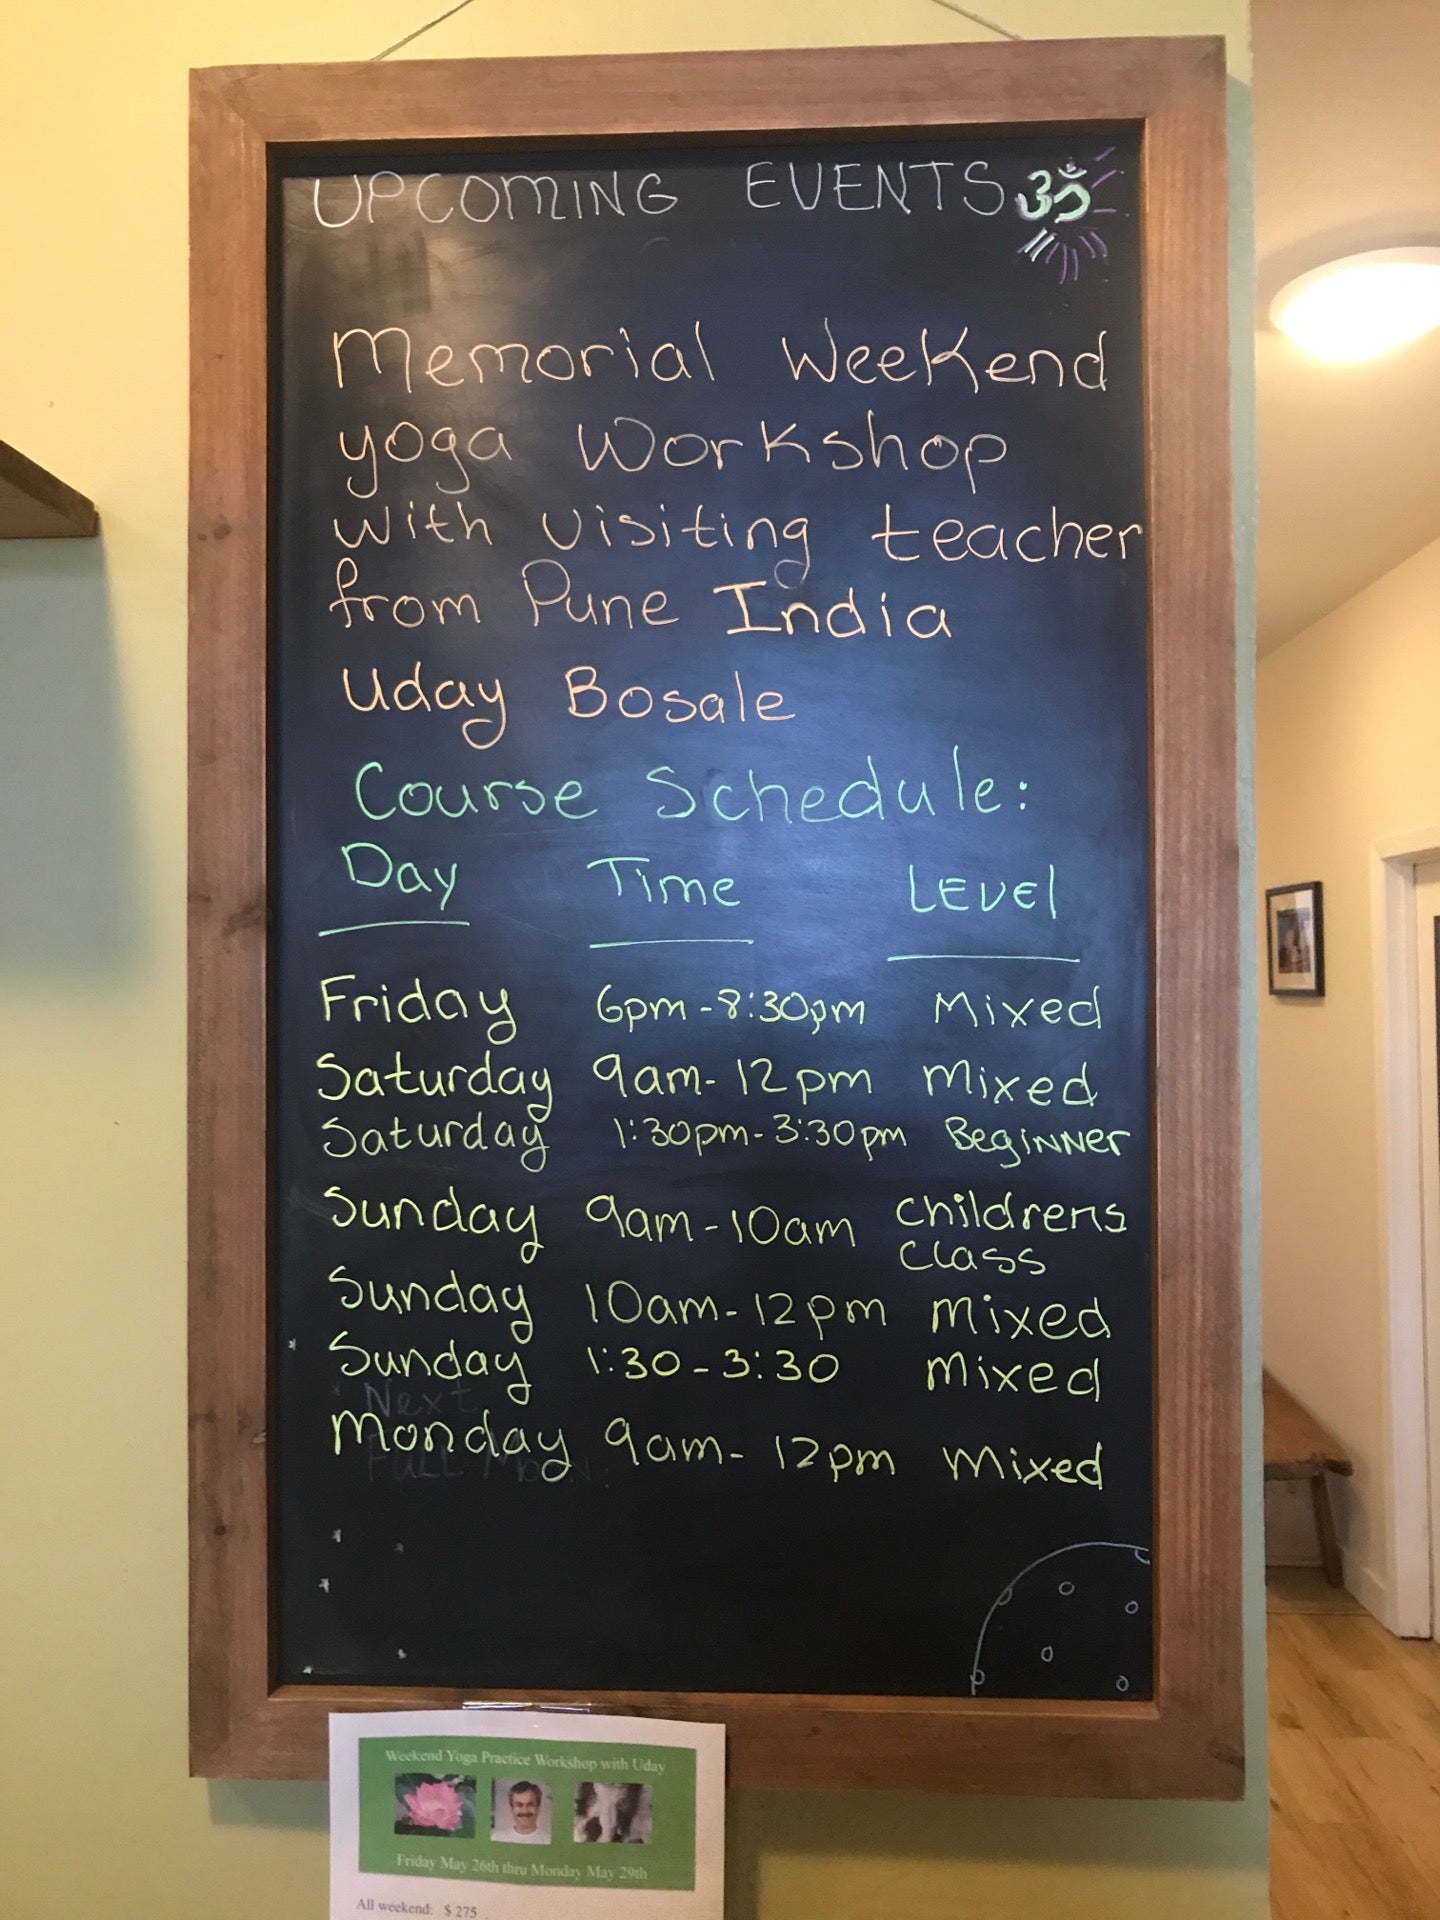 UPCOMING EVENTS ॐ
Memorial Weekend
yoga Workshop
with visiting teacher
from Pune India
Uday Bosale
Course Schedule:
Day Time LEVEL
Friday 6pm-8:30pm Mixed
Saturday 9am-12pm Mixed
Saturday 1:30pm-3:30pm Beginner
Sunday 9am-10am childrens
class
Sunday 10am-12pm Mixed
Sunday 1:30-3:30 Mixed
Next
Monday 9am-12pm Mixed
FULL Moon:
Weekend Yoga Practice Workshop with Uday
Friday May 26th thru Monday May 29th
All weekend: $ 275